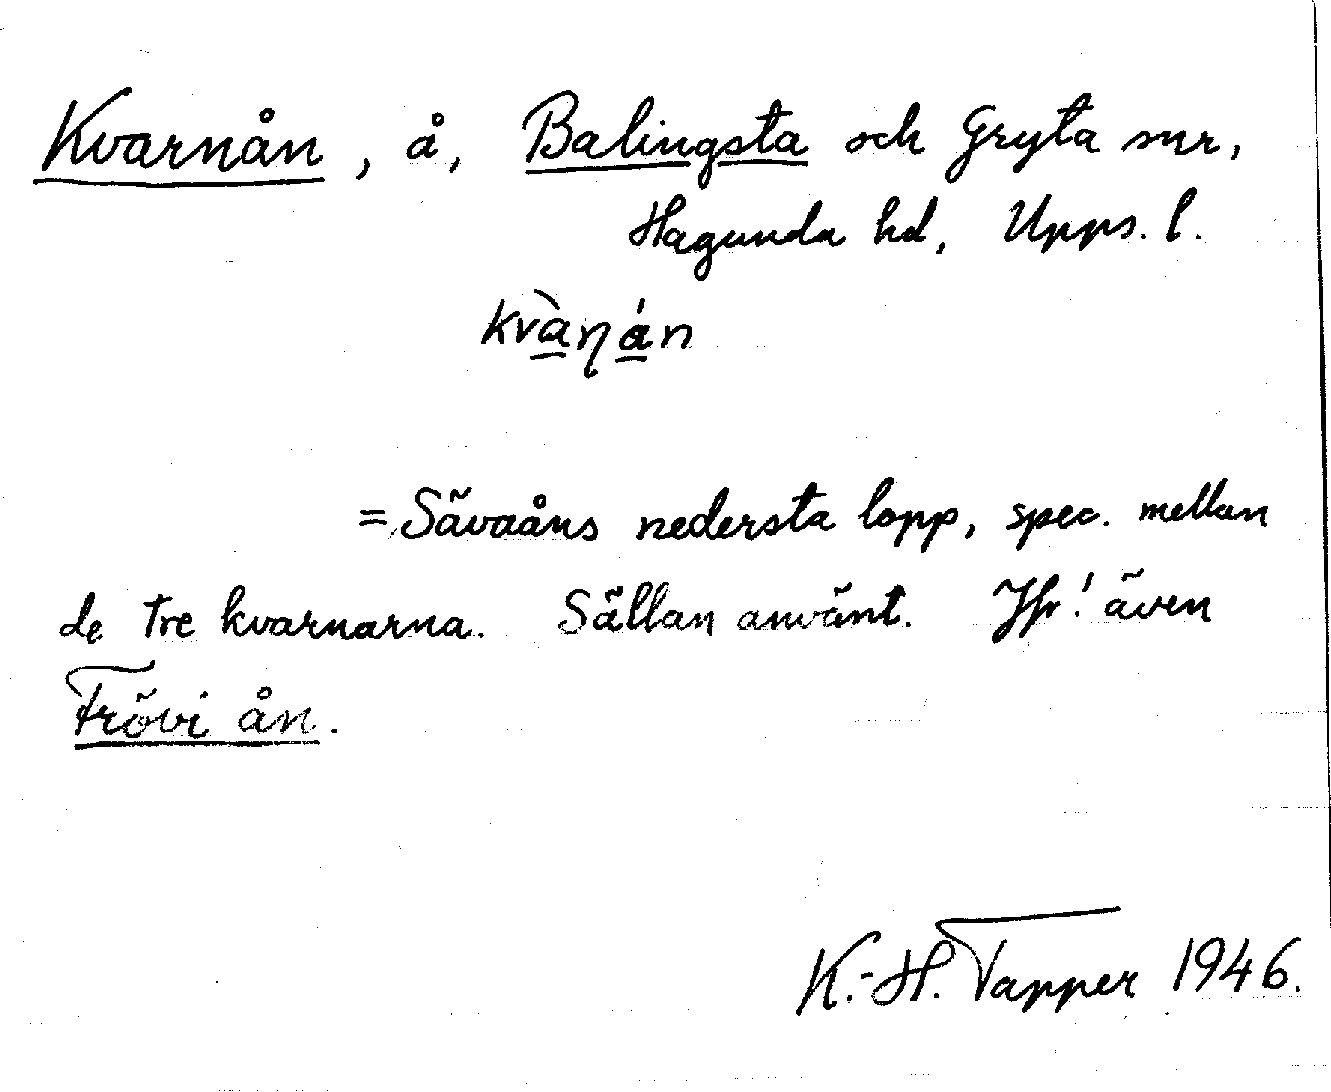 Kvarnån, å, Balingsta och Gryta snr,
Hagunda hd, Upps. l.
kvàṇán
= Sävaåns nedersta lopp, spec. mellan
de tre kvarnarna. Sällan använt. Jfr! även
Frövi ån.
K.-H. Tapper 1946.